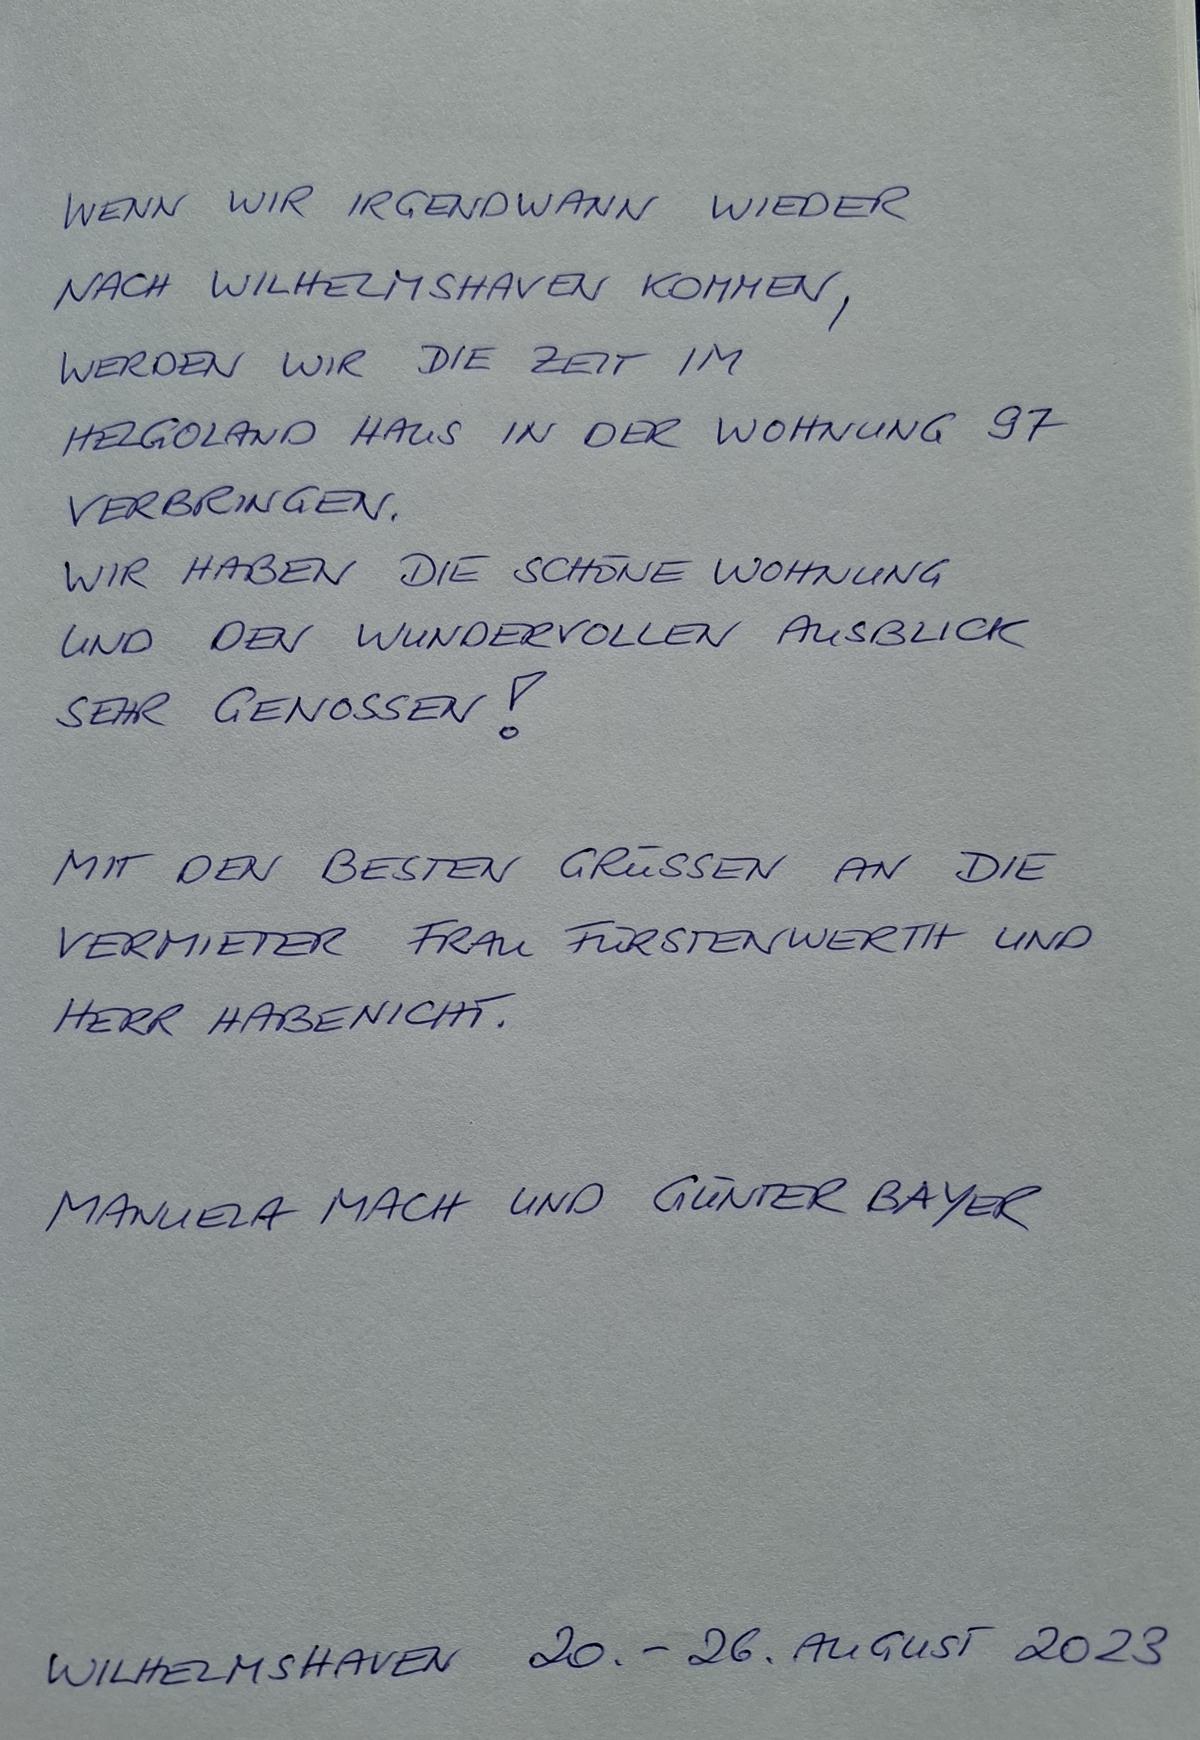 WENN WIR IRGENDWANN WIEDER
NACH WILHELMSHAVEN KOMMEN,
WERDEN WIR DIE ZEIT IM
HELGOLAND HAUS IN DER WOHNUNG 97
VERBRINGEN.
WIR HABEN DIE SCHÖNE WOHNUNG
UND DEN WUNDERVOLLEN AUSBLICK
SEHR GENOSSEN!
MIT DEN BESTEN GRÜSSEN AN DIE
VERMIETER FRAU FÜRSTENWERTH UND
HERR HABENICHT.
MANUELA MACH UND GÜNTER BAYER
WILHELMSHAVEN 20. - 26. AUGUST 2023